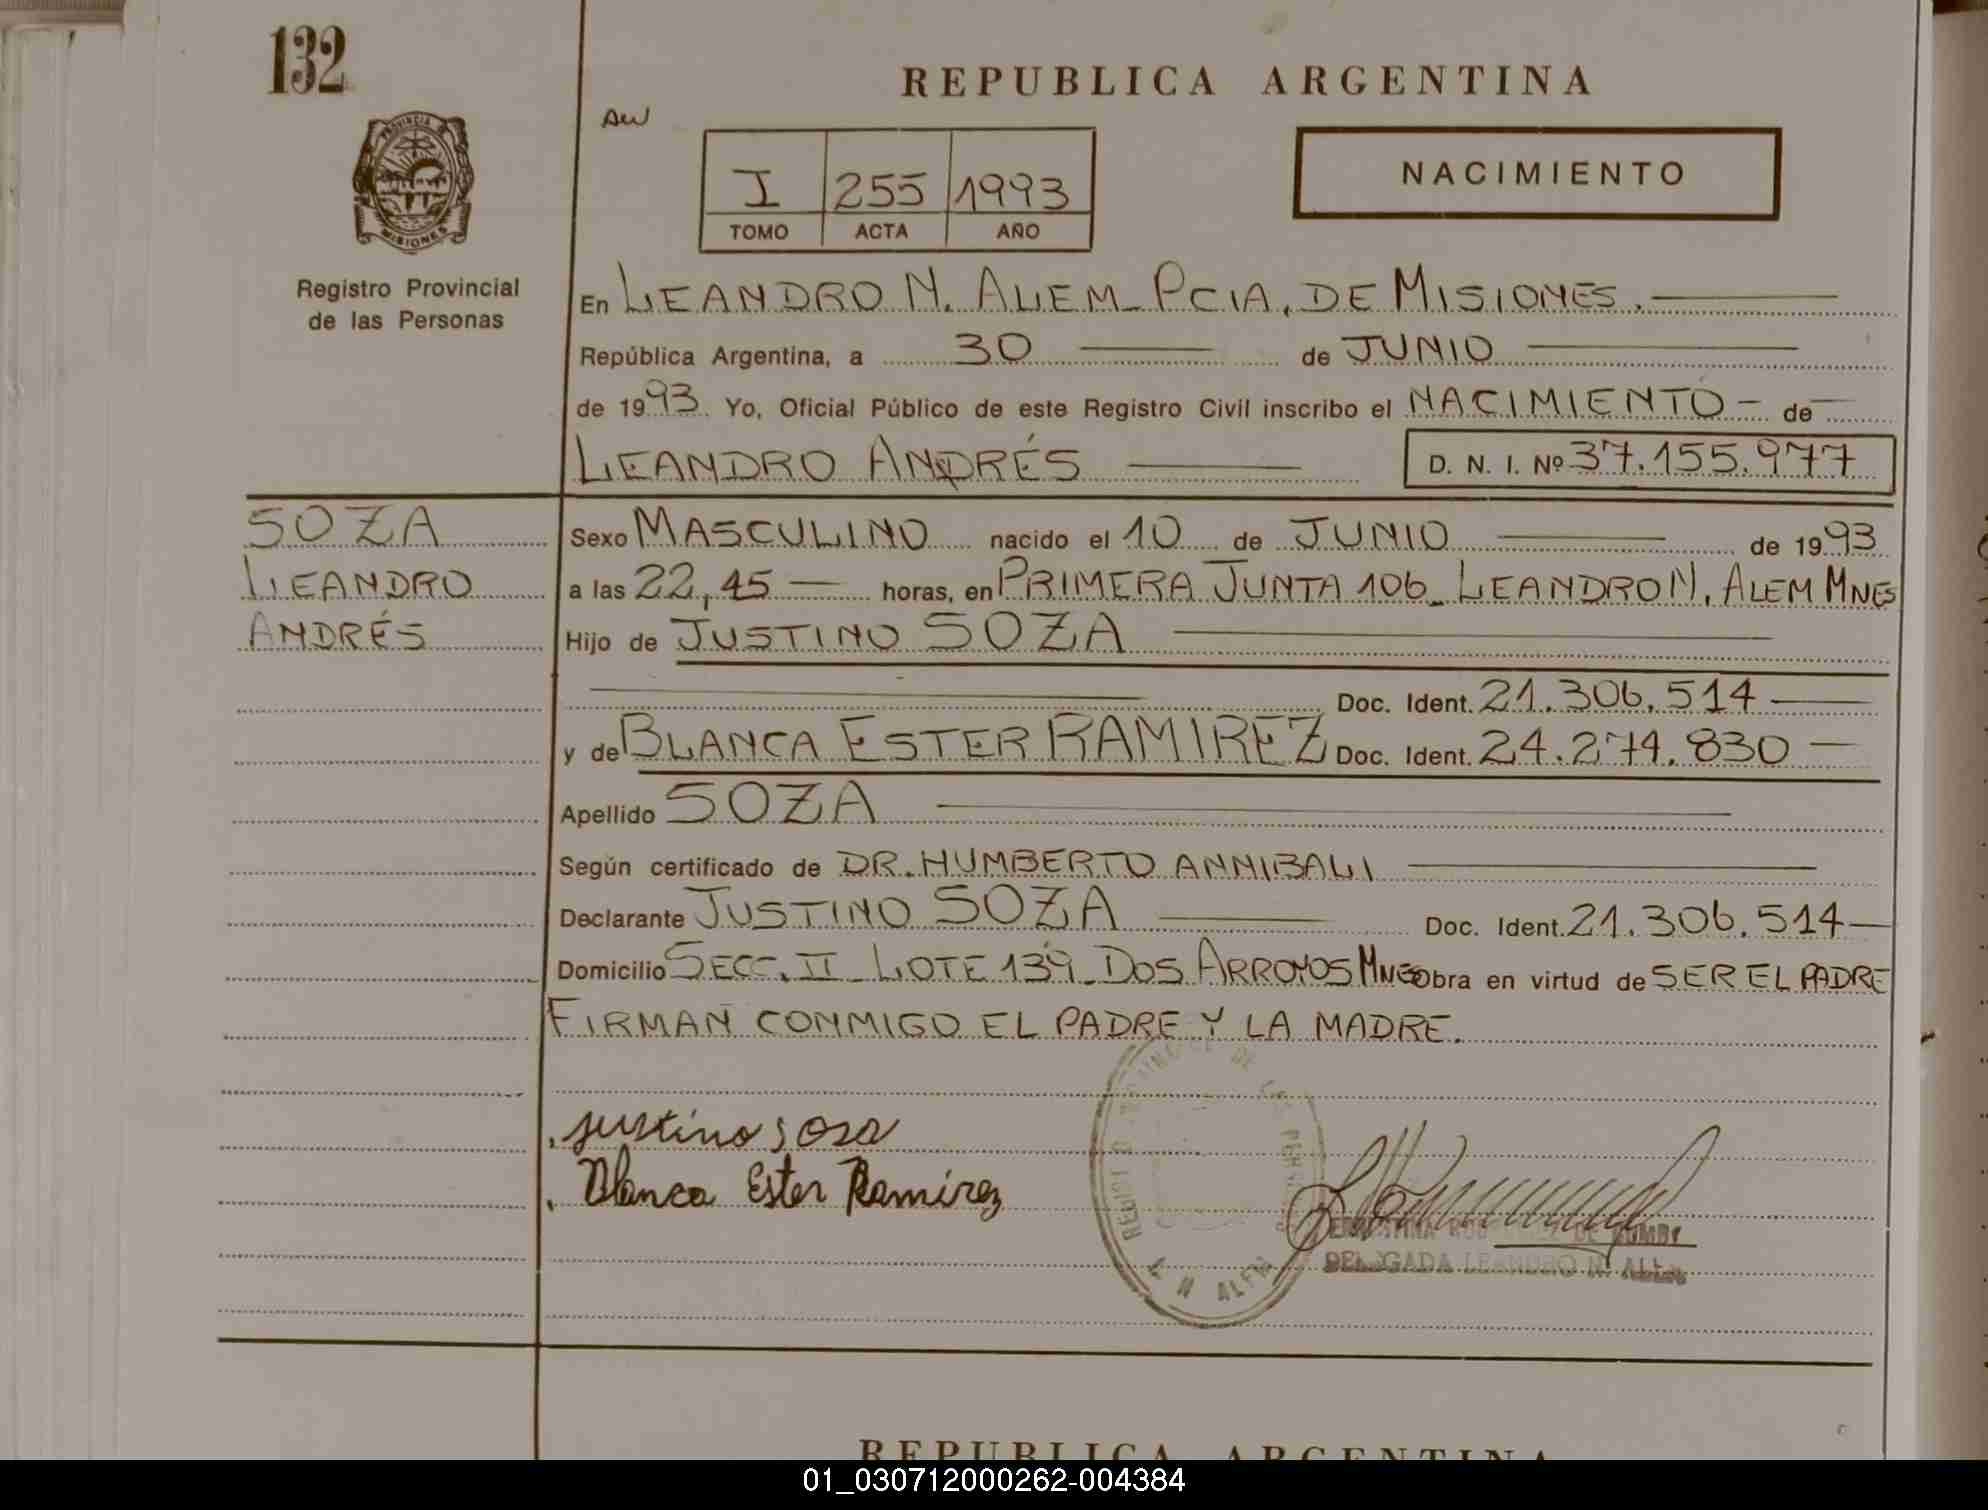 132
REPUBLICA ARGENTINA
PROVINCIA DE
MISIONES
I 255 1993
TOMO ACTA AÑO
NACIMIENTO
Registro Provincial
de las Personas
En LEANDRO N. ALEM - PCIA. DE MISIONES.
República Argentina, a 30 de JUNIO
de 1993 Yo, Oficial Público de este Registro Civil inscribo el NACIMIENTO - de
LEANDRO ANDRÉS D. N. I. Nº 37.155.977
SOZA
LEANDRO
ANDRÉS
Sexo MASCULINO nacido el 10 de JUNIO de 1993
a las 22,45 horas, en PRIMERA JUNTA 106 - LEANDRO N. ALEM MNES
Hijo de JUSTINO SOZA
Doc. Ident. 21.306.514
y de BLANCA ESTER RAMIREZ Doc. Ident. 24.274.830
Apellido SOZA
Según certificado de DR. HUMBERTO ANNIBALI
Declarante JUSTINO SOZA Doc. Ident. 21.306.514
Domicilio SECC. II - LOTE 139 - DOS ARROYOS MNES Obra en virtud de SER EL PADRE
FIRMAN CONMIGO EL PADRE Y LA MADRE.
justino sosa
Blanca Ester Ramirez
L N ALEM
DELEGADA LEANDRO N. ALEM
REPUBLICA ARGENTINA
01_030712000262-004384